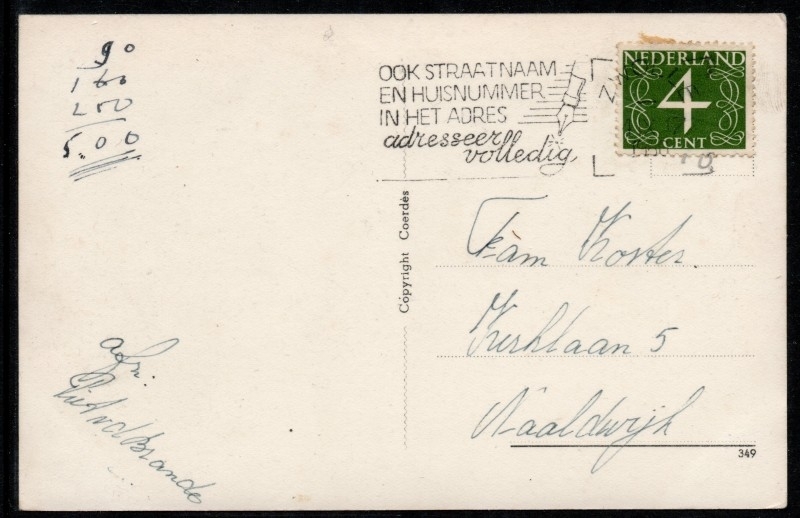 90
160
250
5.00
OOK STRAATNAAM
EN HUISNUMMER
IN HET ADRES
adresseer
volledig
NEDERLAND
4
CENT
Copyright Coerdès
Fam Koster
Kerklaan 5
Naaldwijk
afz:
349